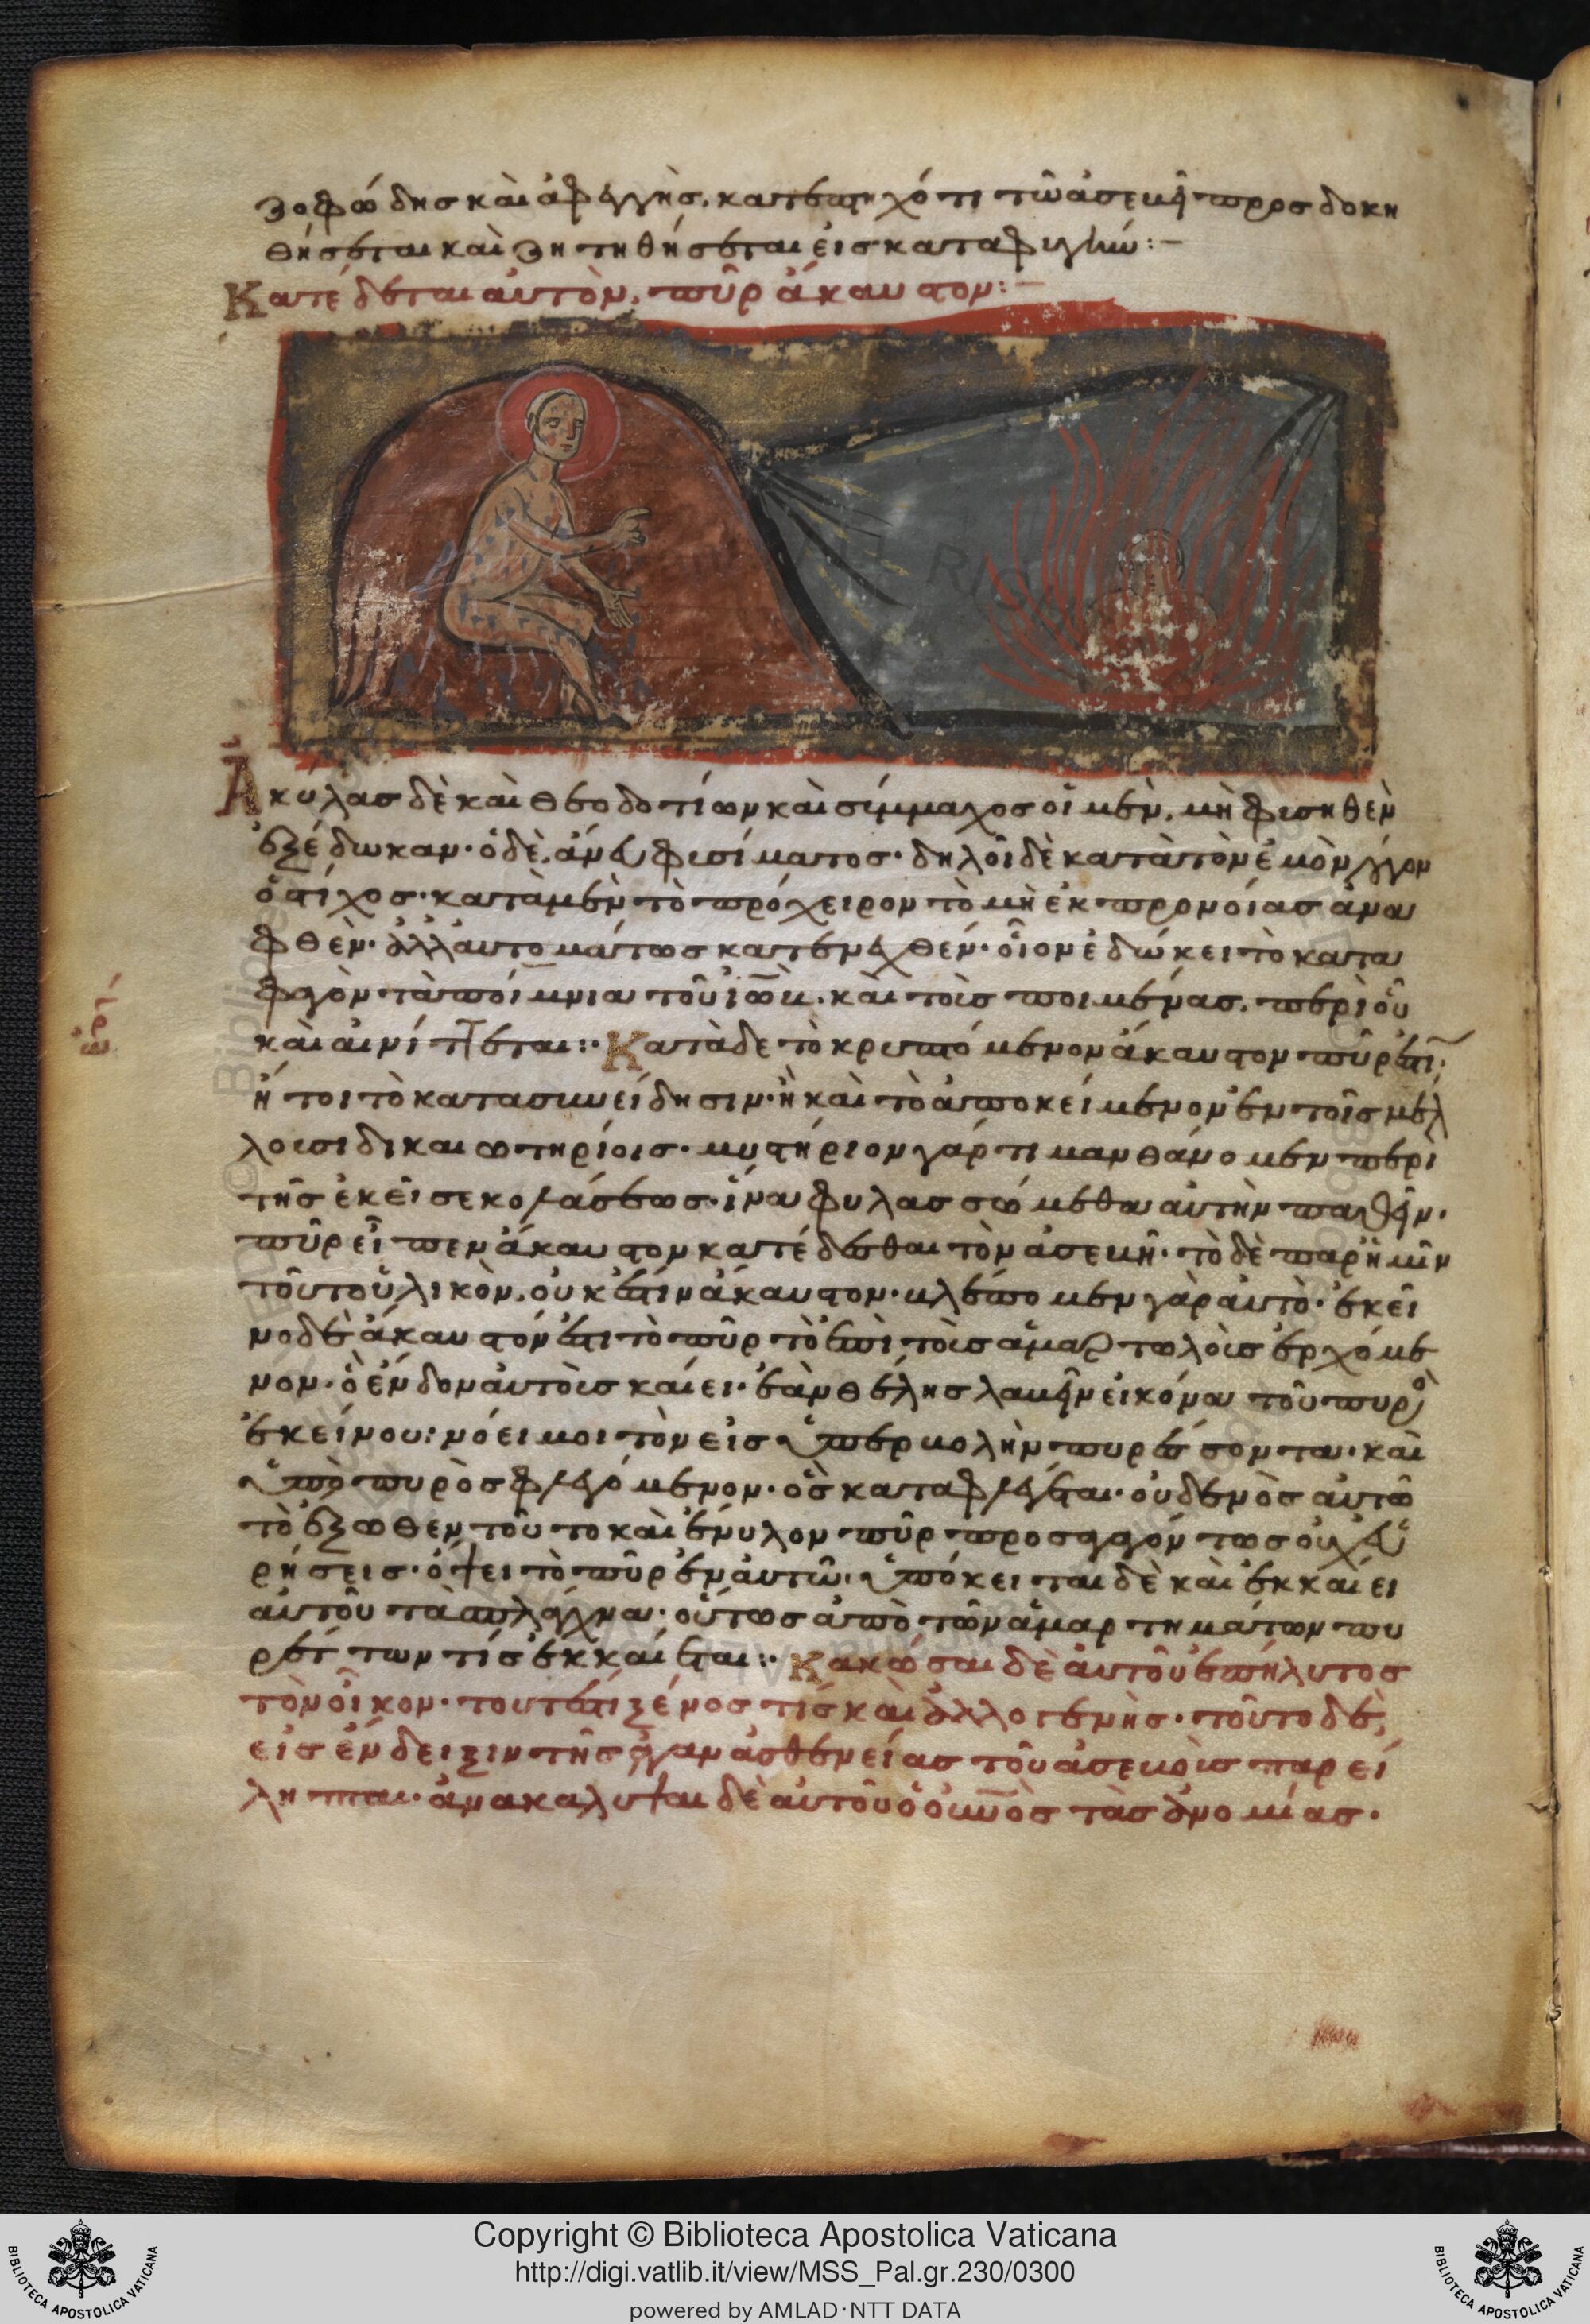 ζοφώδης καὶ ἀφεγγὴς. κατεπτηχότι τῶ ἀσεβεῖ προσδοκη
θήσεται καὶ ζητηθήσεται εἰς καταφυγήν:–
Κατέδεται αὐτὸν, πῦρ ἄκαυστον:–
Ἀκύλας δὲ καὶ Θεοδοτίων καὶ σύμμαχος οἱ μὲν. μὴ φυσηθὲν
ἐξέδωκαν· ὁ δὲ, ἄνευ φυσήματος· δηλοῖ δὲ κατὰ τὸν ἐμὸν λόγον
ὁ στίχος· κατὰ μὲν τὸ πρόχειρον τὸ μὴ ἐκ προνοίας ἀνα
φθὲν· ἀλλ' αὐτομάτως κατενεχθέν· οἷον ἐδώκει τὸ κατα
φλεγὸν τὰ ποίμνια τοῦ ἰὼβ. καὶ τοὺς ποιμένας. περὶ οὗ
καὶ αἰνίττεται:· Κατὰ δὲ τὸ κρυπτόμενον ἄκαυστον πῦρ ἐστὶ·
ἤτοι τὸ κατὰ συνείδησιν· ἢ καὶ τὸ ἀποκείμενον ἐν τοῖς μέλ
λουσι δικαιωτηρίοις· μυστήριον γάρ τι μανθάνομεν περὶ
τῆς ἐκεῖσε κολάσεως· ἵνα φυλασσώμεθα αὐτὴν παθεῖν·
πῦρ εἶπεν ἄκαυστον κατέδεσθαι τὸν ἀσεβῆ· τὸ δὲ παρ' ἡμῖν
τοῦτο ὑλικὸν, οὐκ ἔστιν ἄκαυστον· βλέπομεν γὰρ αὐτὸ· ἐκεῖ
νο δὲ ἄκαυστόν ἐστι τὸ πῦρ τὸ ἐπὶ τοὺς ἁμαρτωλοὺς ἐρχόμε
νον· ὃ ἔνδον αὐτοὺς καίει· ἐὰν θέλης λαβεῖν εἰκόνα τοῦ πυρὸς
ἐκείνου: νόει μοι τὸν εἰς ὑπερβολὴν πυρέσσοντα· καὶ
ὑπὸ πυρὸς φλεγόμενον· ὃς καταφλέγεται· οὐδενὸς αὐτῶ
τὸ ἔξωθεν τοῦτο καὶ ἔνυλον πῦρ προσαγαγόντος οὐχ εὑ
ρήσεις· ὄψει τὸ πῦρ ἐν αὐτῶ· ὑπόκειται δὲ καὶ ἐκκαίει
αὐτοῦ τὰ σπλάγχνα· οὕτως ἀπὸ τῶν ἁμαρτημάτων πυ
ρέττων τίς ἐκκαίεται:· Κακώσαι δὲ αὐτοῦ ἐπήλυτος
τὸν οἶκον· τουτέστι ξένος τίς καὶ ἀλλογενὴς· τοῦτο δὲ,
εἰς ἔνδειξιν τῆς ἄγαν ἀσθενείας τοῦ ἀσεβοῦς παρεί
ληπται· ἀνακαλύψαι δὲ αὐτοῦ ὁ οὐνὸς τὰς ἀνομίας·
Copyright © Biblioteca Apostolica Vaticana
http://digi.vatlib.it/view/MSS_Pal.gr.230/0300
powered by AMLAD·NTT DATA
BIBLIOTECA APOSTOLICA VATICANA
BIBLIOTECA APOSTOLICA VATICANA